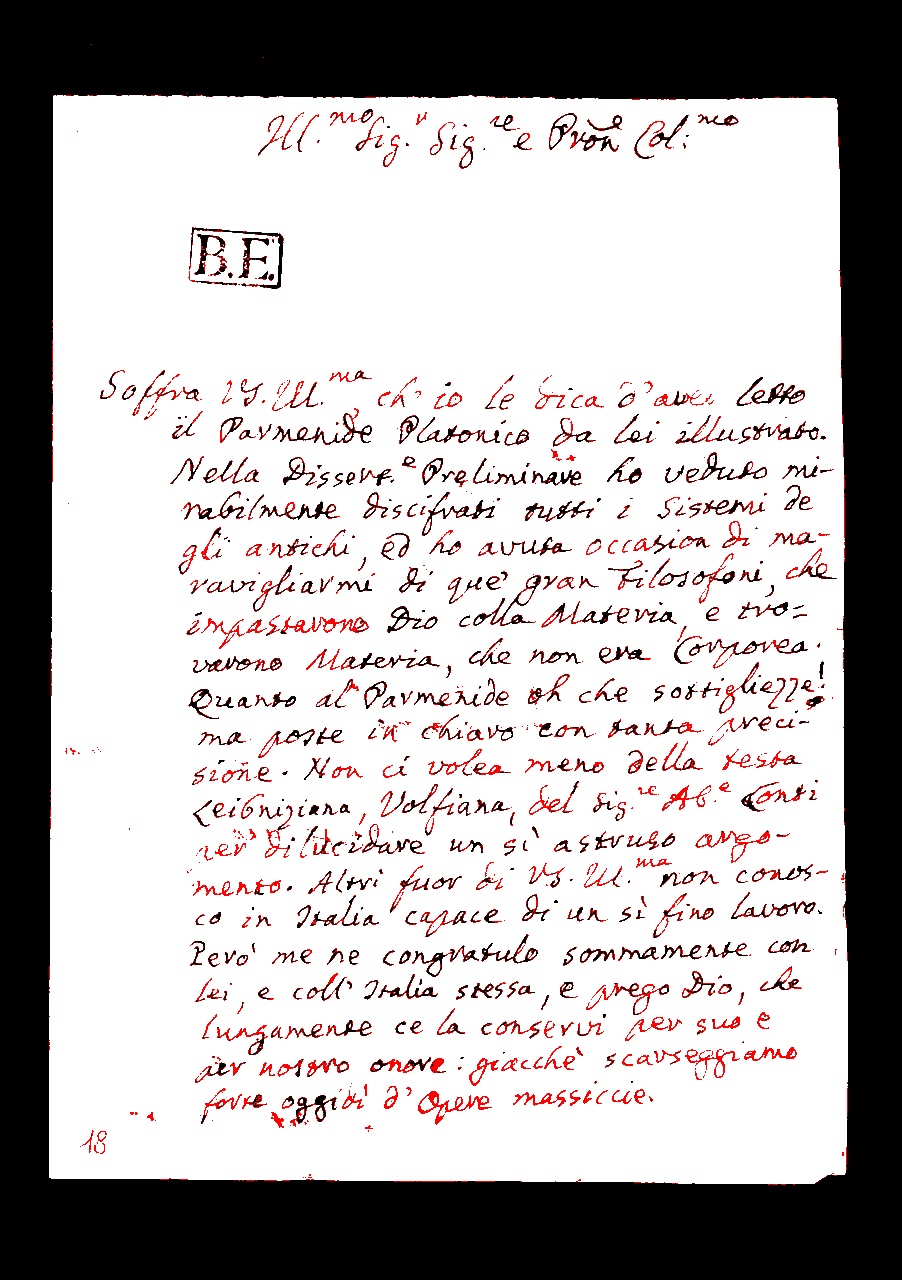 Ill.mo Sig.r Sig.re e Pron̄e Col:mo
B.E.
Soffra VS. Ill.ma, ch' io le dica d'aver letto
il Parmenide Platonico da lei illustrato.
Nella Dissert.e Preliminare ho veduto mi-
rabilmente discifrati tutti i Sistemi de
gli antichi, ed ho avuta occasion di ma-
ravigliarmi di que' gran Filosofoni, che
impastavono Dio colla Materia, e tro=
vavono Materia, che non era Corporea.
Quanto al Parmenide oh che sottigliezze!
ma poste in chiaro con tanta preci-
sione. Non ci volea meno della testa
Leibniziana, Volfiana, del Sig.re Ab.e Conti
per dilucidare un sì astruso argo-
mento. Altri fuor di VS. Ill.ma non conos-
co in Italia capace di un sì fino lavoro.
Però me ne congratulo sommamente con
lei, e coll' Italia stessa, e prego Dio, che
lungamente ce la conservi per suo e
per nostro onore: giacchè scarseggiamo
forte oggidì d' Opere massiccie.
18